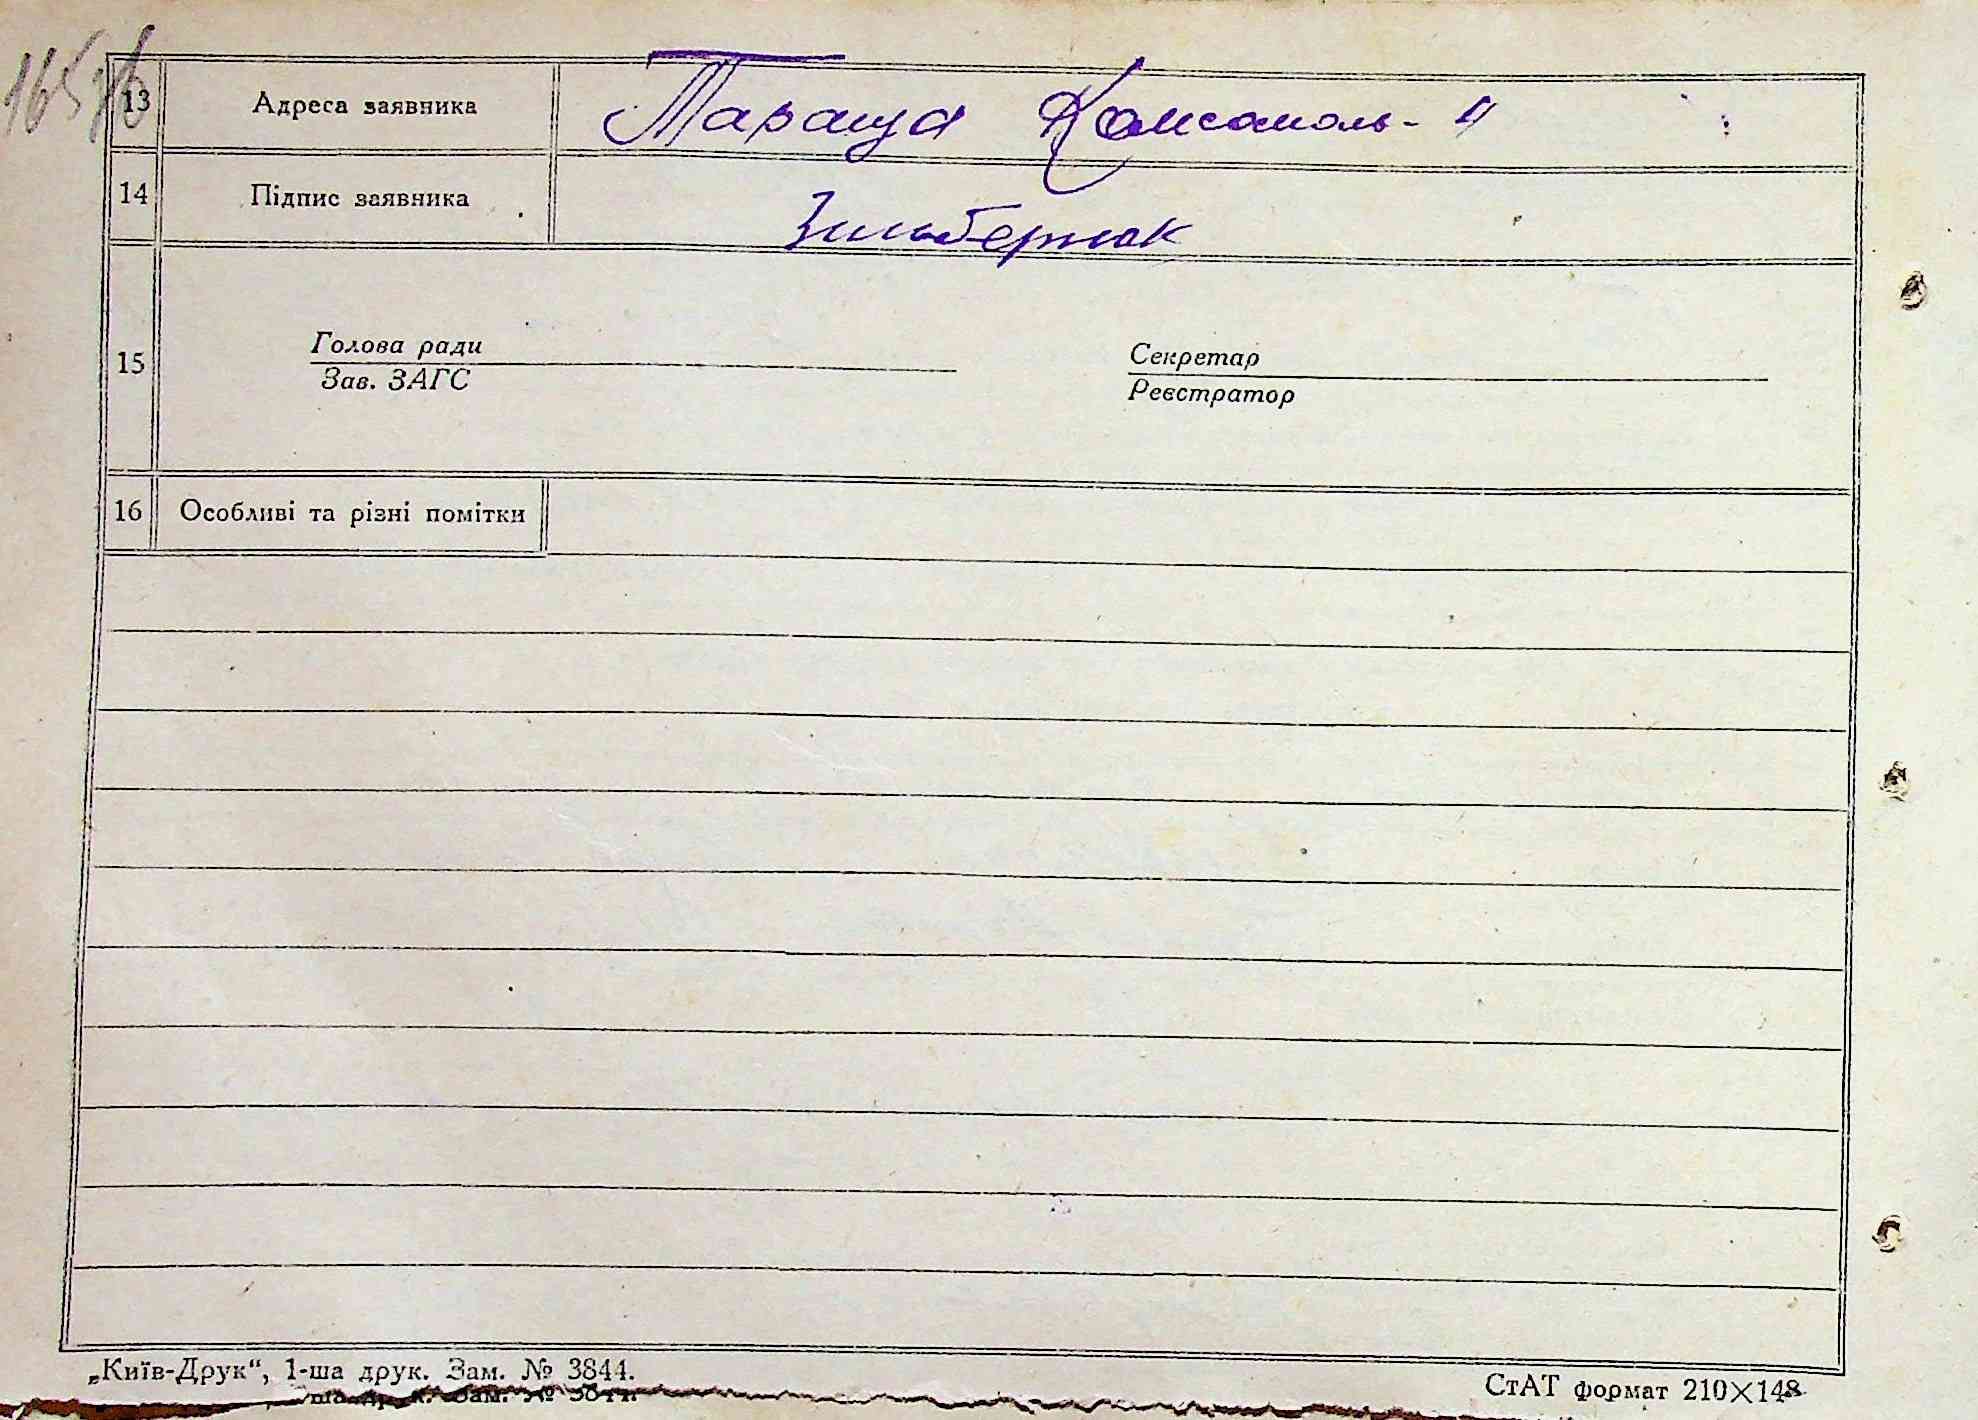 165 зв
13 Адреса заявника Тараща Комсомоль- 4
14 Підпис заявника Зильберман
15 Голова ради Секретар
Зав. ЗАГС Реєстратор
16 Особливі та різні помітки
„Київ-Друк“, 1-ша друк. Зам. № 3844. СтАТ формат 210×148